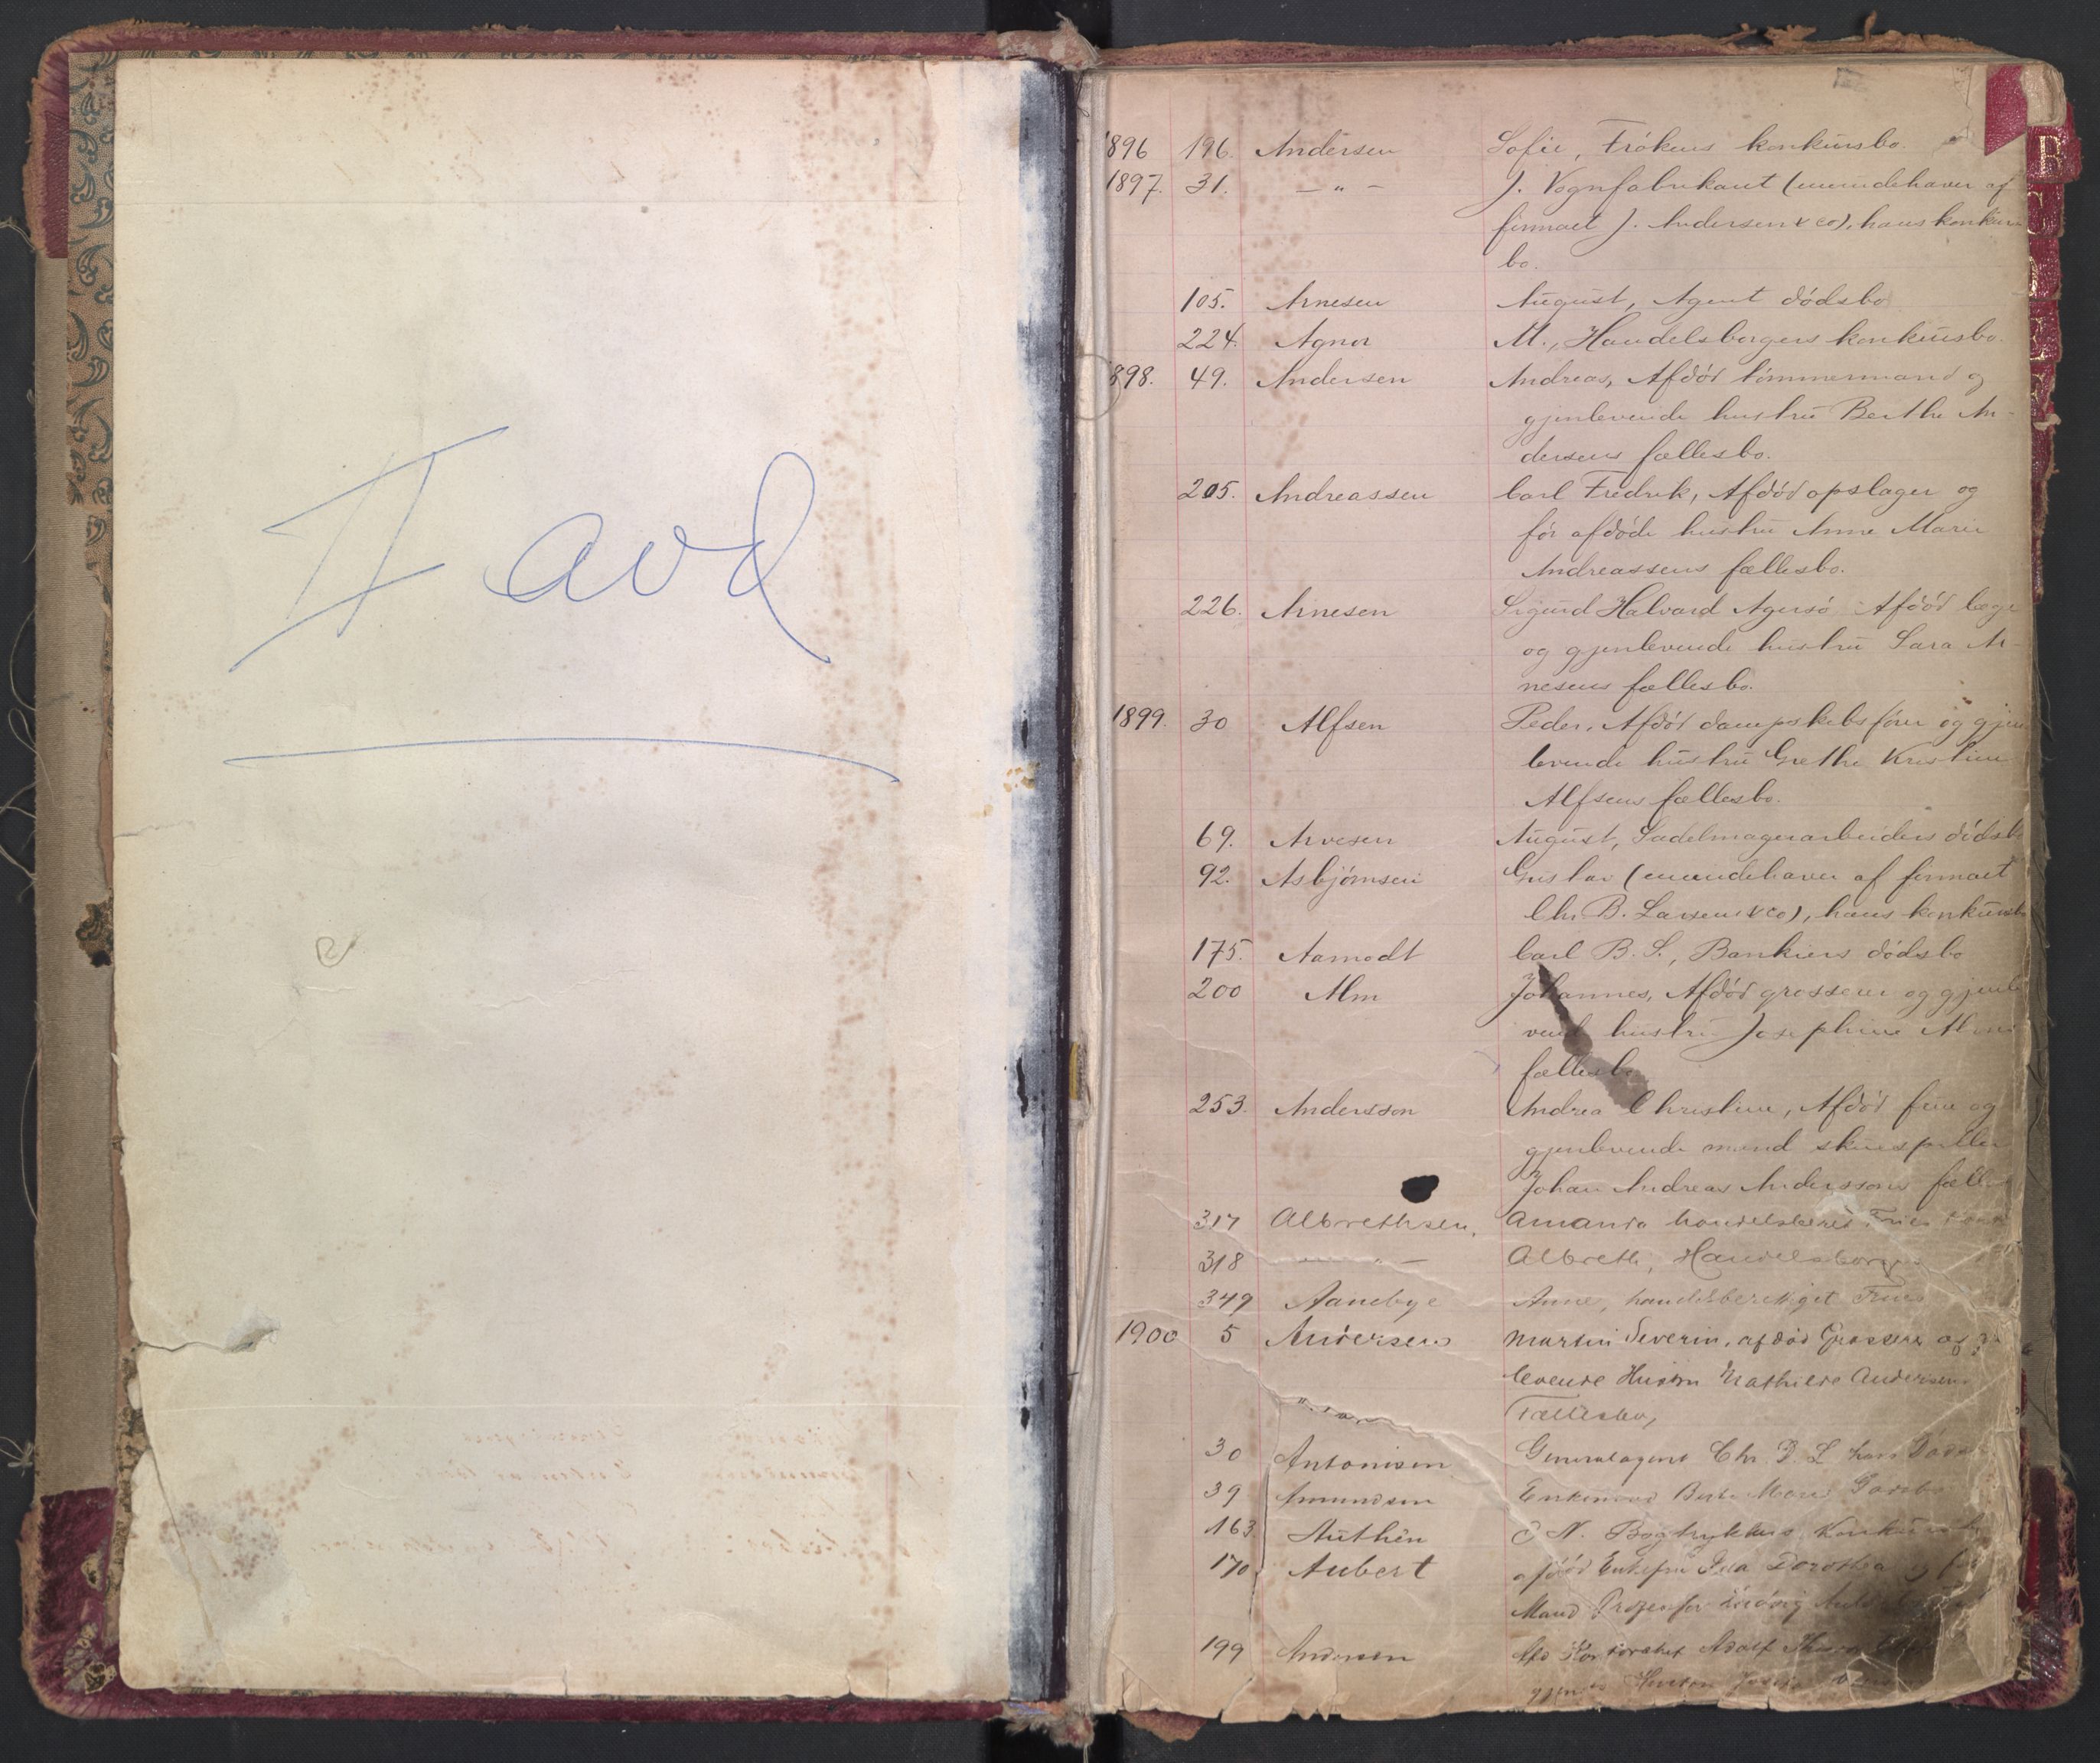 I avd
B
C
1896 196. Andersen Sofie, Frökens konkursbo.
1897. 31. — " — J. Vognfabrikant (meindehaver af
firmaet J. Andersen & Co), hans konkurs
bo.
105. Arnesen August, Agent dödsbo
224. Agner M., Handelsborgers konkursbo.
1898. 49. Andersen Andreas, Afdöd tömmermand og
gjenlevende hustru Berthe An-
dersens fællesbo.
205. Andreassen Carl Fredrik, Afdöd opslager og
før afdöde hustru Anne Marie
Andreassens fællesbo.
226. Arnesen Sigurd Halvard Agersö Afdöd læge
og gjenlevende hustru Sara Ar-
nesens fællesbo.
1899. 30 Alfsen Peder, Afdöd dampskibsförer og gjen
levende hustru Grethe Kristine
Alfsens fællesbo.
69. Arvesen August, Sadelmagerarbeiders dödsbo
92. Asbjörnsen Gustav (meindehaver af firmaet
Chr. B. Larsen & Co), hans konkursbo
175. Aamodt Carl B. S., Bankiers dödsbo
200 Alm Johannes, Afdöd grosserer og gjenle
vende hustru Josephine Alms
fællesbo
253. Andersson Andrea Christine, Afdöd frue og
gjenlevende mand skuespiller
Johan Andreas Anderssons fælles
317 Albrethsen, Amanda handelsberet Frues
318 — " — Albreth, Handelsborger
349 Aanebye Anne, handelsberettiget Frues
1900 5 Andersen Martin Severin, afdöd Grosserer og
levende Hustru Mathilde Andersens
Fællesbo,
30 Antonisen Generalagent Chr. D. L. hans Döds
39 Amundsen Enkemad Berte Marie
163 Authén O N. Bogtrykkers Konkurs
170 Aubert afdöd Enkefru Ida Dorothea
Mand Professor Ludvig
199 Andersen Afd Adolf
Hustru